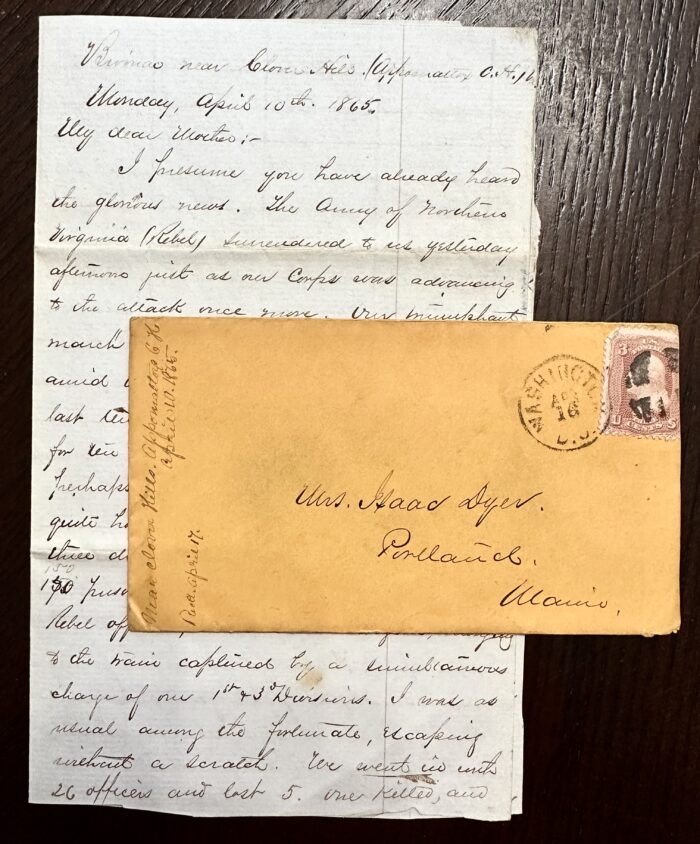 Bivouac near Clover Hill. (Appomattox C.H.)
Monday, April 10th. 1865.
My dear Mother:-
I presume you have already heard
the glorious news. The Army of Northern
Virginia (Rebel) surrendered to us yesterday
afternoon just as our Corps was advancing
to the attack once more. Our triumphant
march
amid
last ten
for ten
perhaps
quite
three
150
Rebel
to the train captured by a simultaneous
charge of our 1st & 3d Divisions. I was as
usual among the fortunate, escaping
without a scratch. We went in with
26 officers and lost 5. one killed, and
Near Clover Hills. Appomattox C H
April 10. 1865.
Recd. April 17.
WASHINGTON
APR
16
D.C.
U.S.
3
3
CENTS
Mrs. Isaac Dyer.
Portland.
Maine.